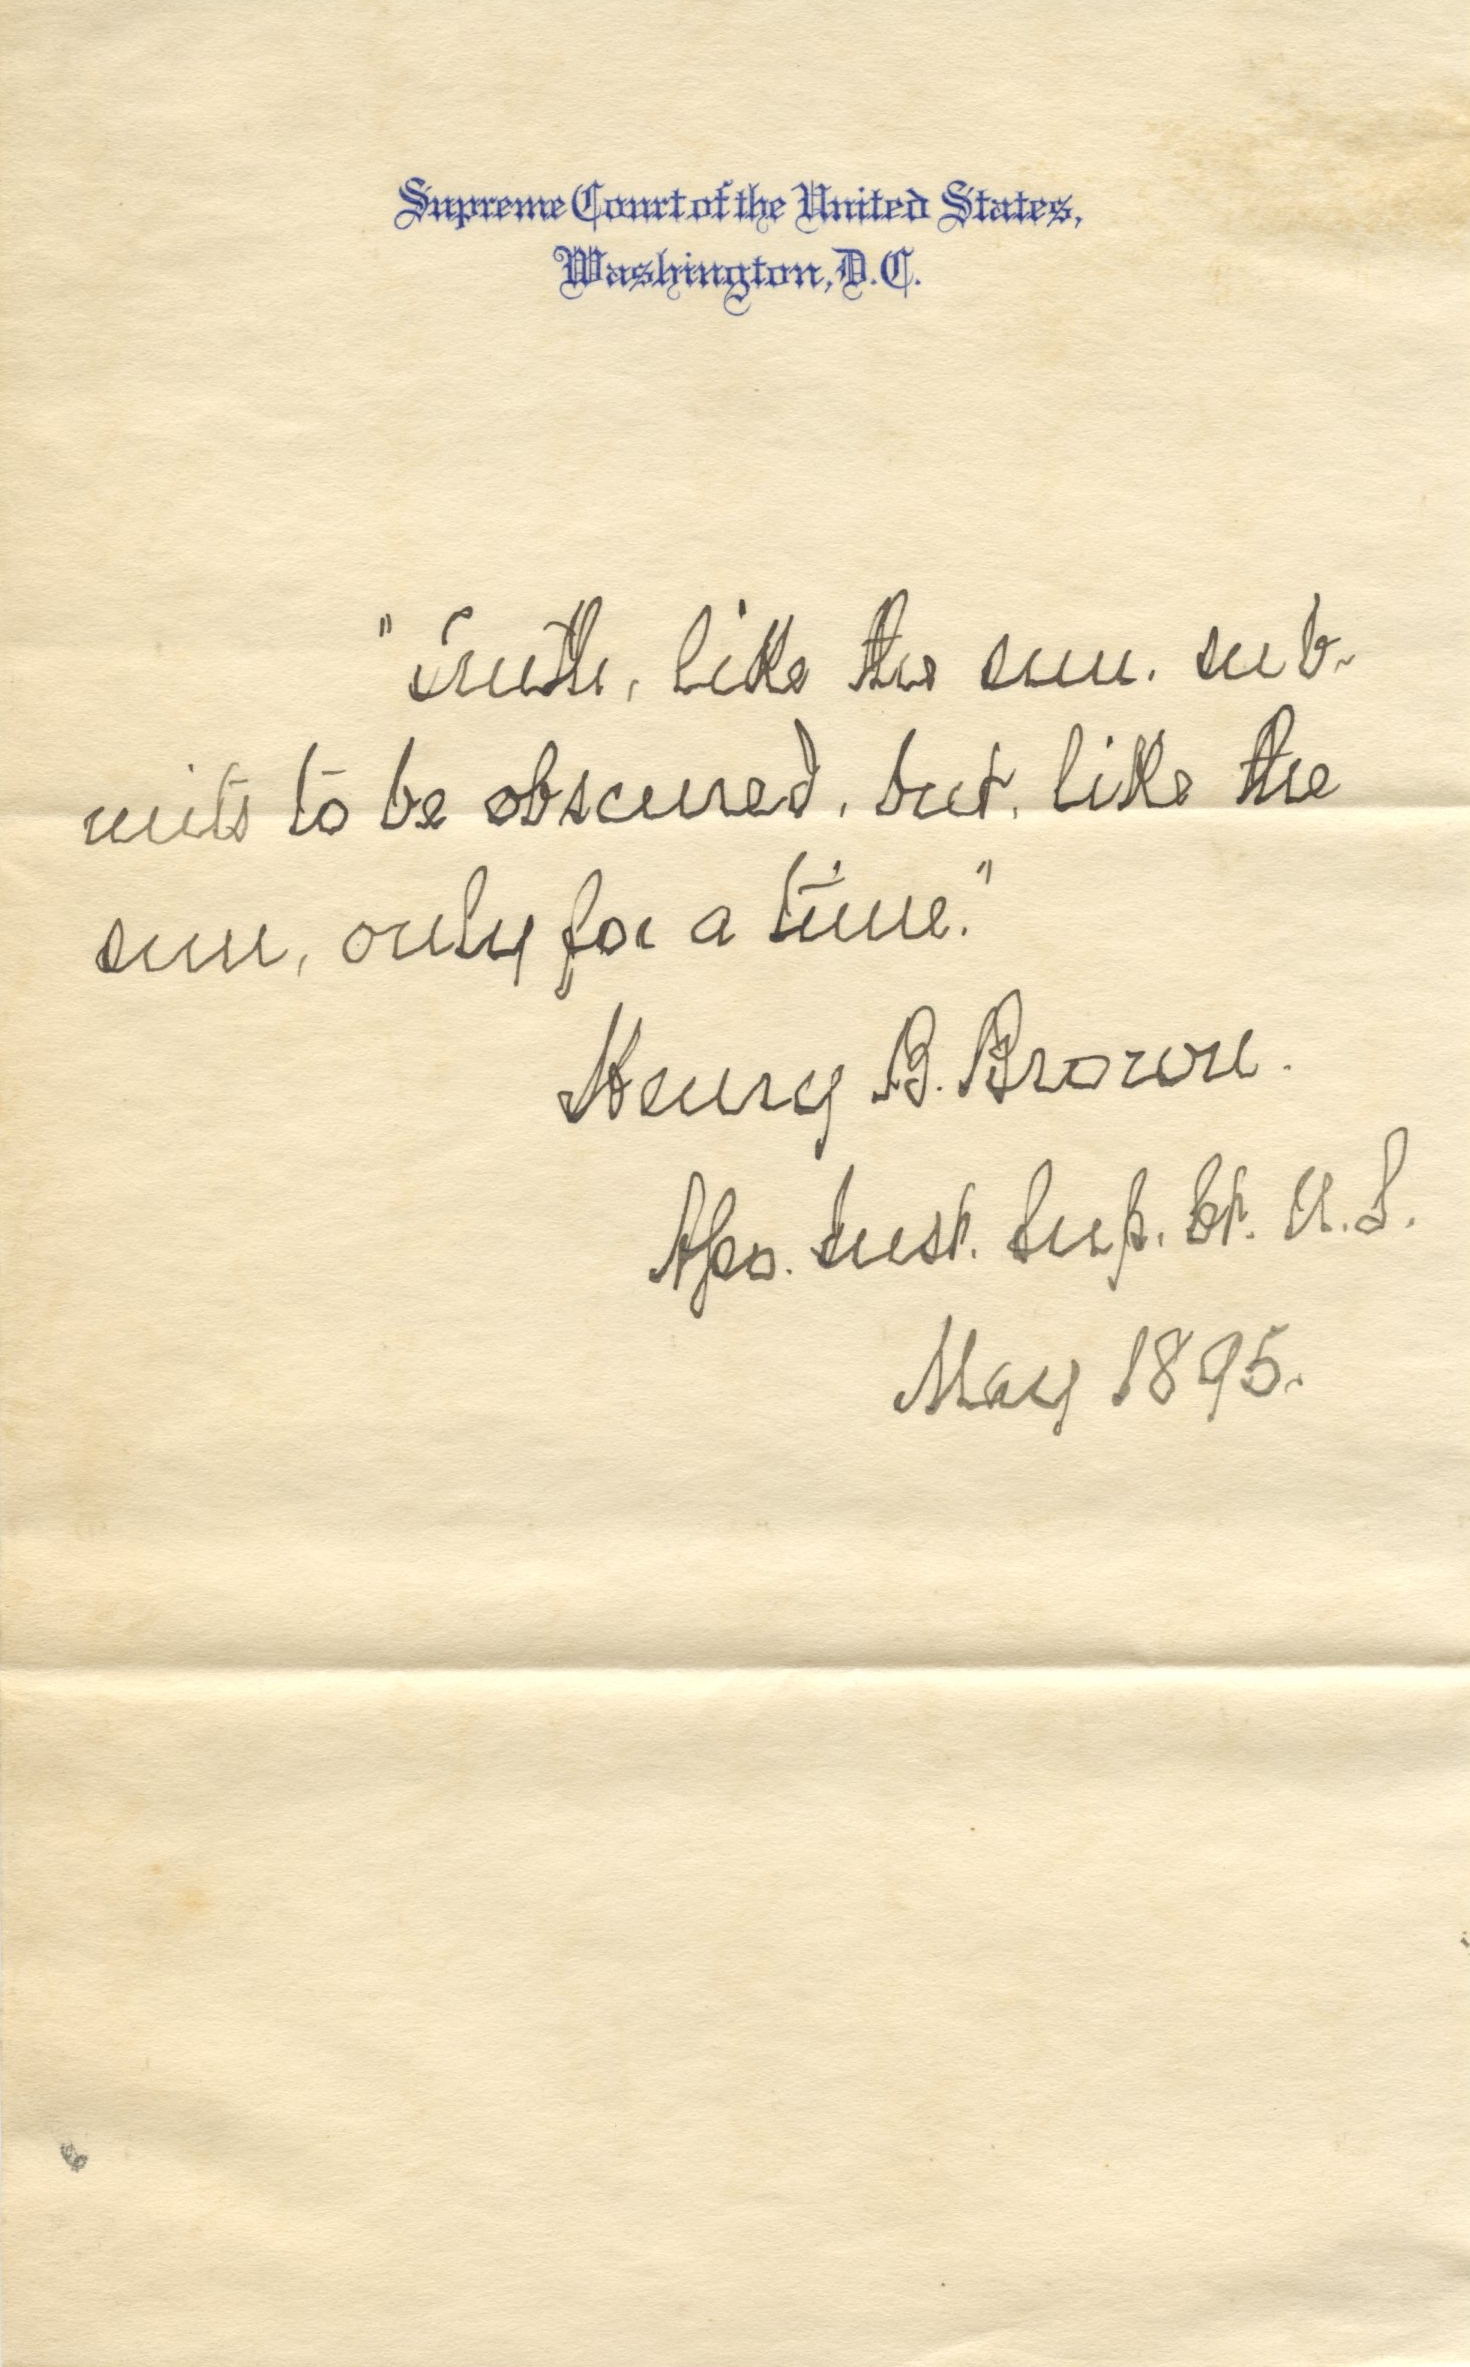 Supreme Court of the United States,
Washington, D.C.
"Truth, like the sun, sub-
mits to be obscured, but, like the
sun, only for a time."
Henry B. Brown.
Asso. Just. Sup. Ct. U.S.
May 1895.